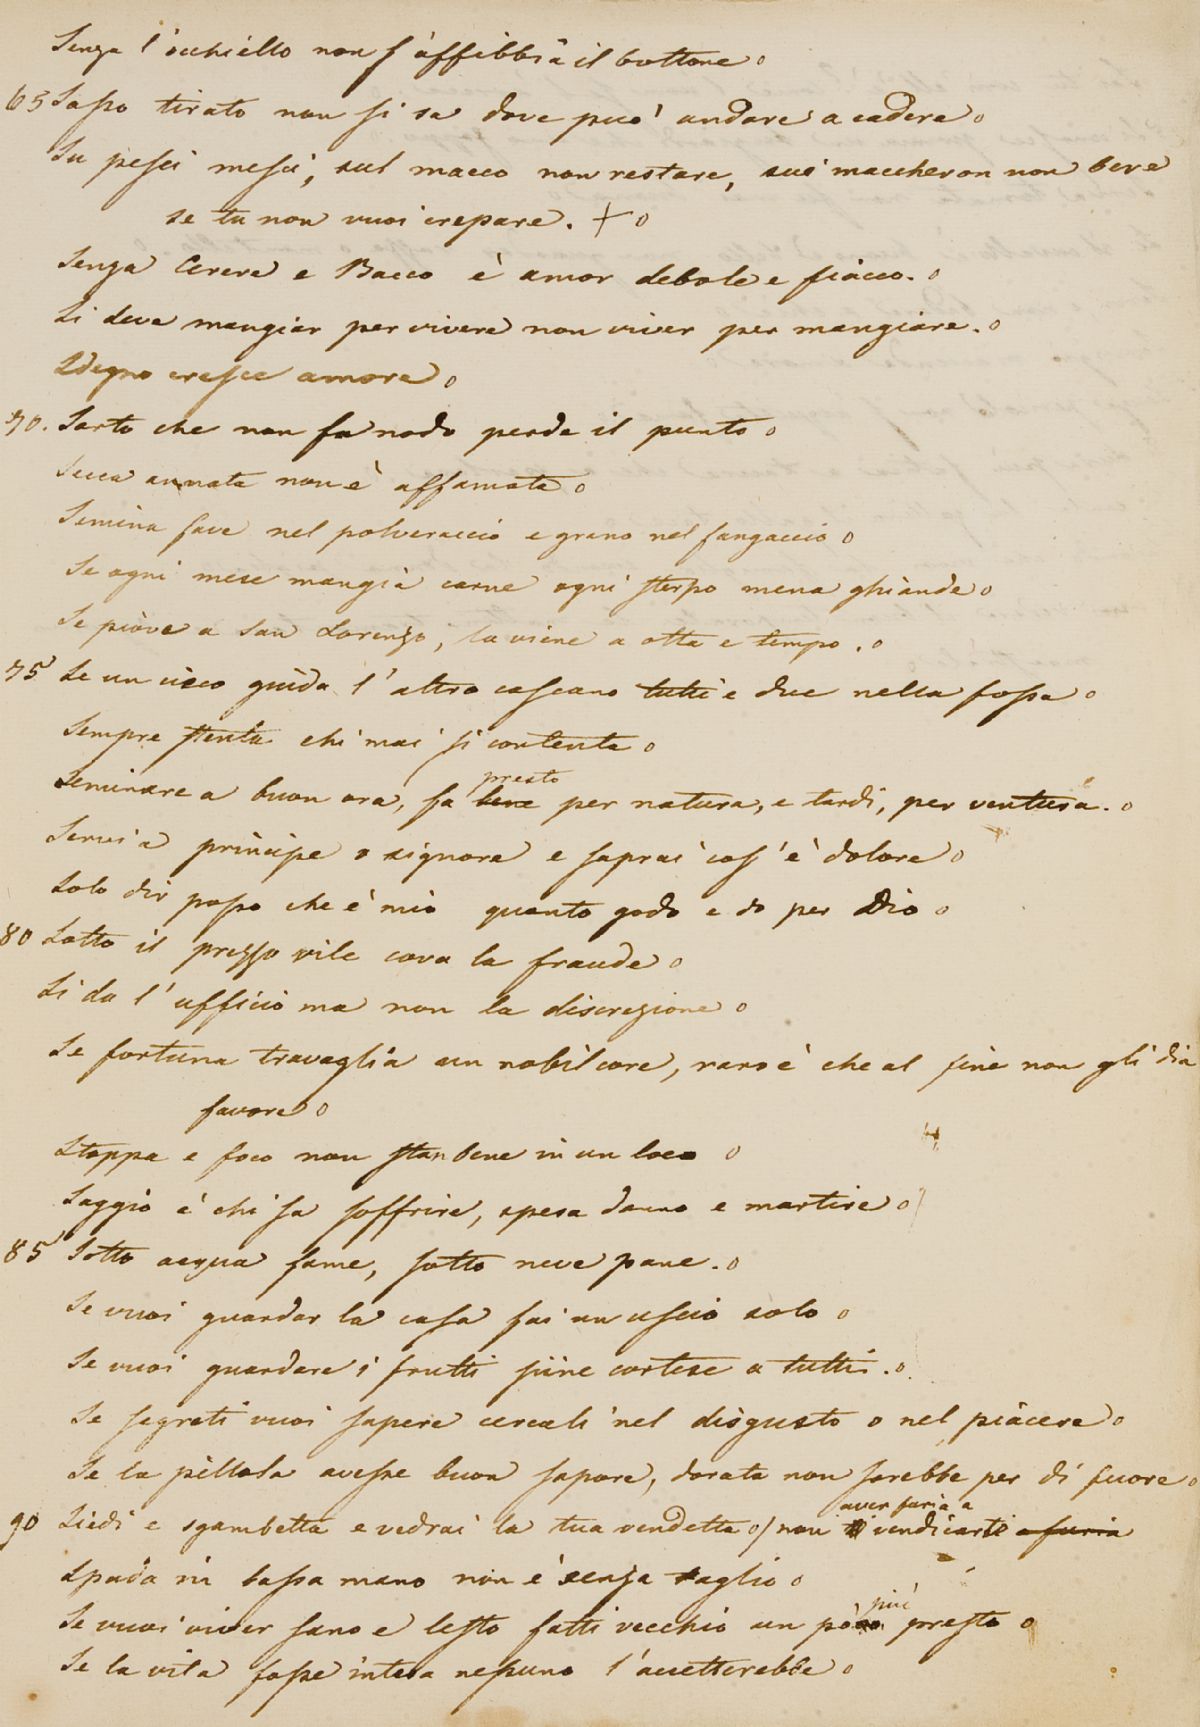 Senza l'occhiello non s'affibbia il bottone o
65 Sasso tirato non si sa dove puo' andare a cadere o
Su pesci mesci, sul macco non restare, sui maccheron non bere
se tu non vuoi crepare. + o
Senza Cerere e Bacco è amor debole e fiacco. o
Si deve mangiar per vivere non viver per mangiare. o
Sdegno cresce amore o
70. Sarto che non fa nodo perde il punto o
Secca annata non è affamata o
Semina fave nel polveraccio e grano nel fangaccio o
Se ogni mese mangia carne ogni sterpo mena ghiande o
Se piove a San Lorenzo, la viene a otta e tempo. o
75 Se un cieco guida l'altro cascano tutti e due nella fossa o
Sempre stenta chi mai si contenta o
presto
Seminare a buon ora, fa bene per natura, e tardi, per ventura. o
Servi a principe o signore e saprai cos'è dolore o
Solo dir posso che è mio quanto godo e do per Dio o
80 Sotto il prezzo vile cova la fraude o
Si da l'ufficio ma non la discrezione o
Se fortuna travaglia un nobil core, raro è che al fine non gli dia
favore o
Stoppa e foco non stan bene in un loco o
Saggio è chi sa soffrire, spesa danno e martire o
85 Sotto acqua fame, sotto neve pane. o
Se vuoi guardar la casa fai un uscio solo o
Se vuoi guardare i frutti siine cortese a tutti. o
Se segreti vuoi sapere cercali nel disgusto o nel piacere o
Se la pillola avesse buon sapore, dorata non sarebbe per di fuore o
aver furia a
90 Siedi e sgambetta e vedrai la tua vendetta o/ non vendicarti a furia
Spada in bassa mano non è senza taglio o
più
Se vuoi viver sano e lesto fatti vecchio un presto o
Se la vita fosse intesa nessuno l'accetterebbe o